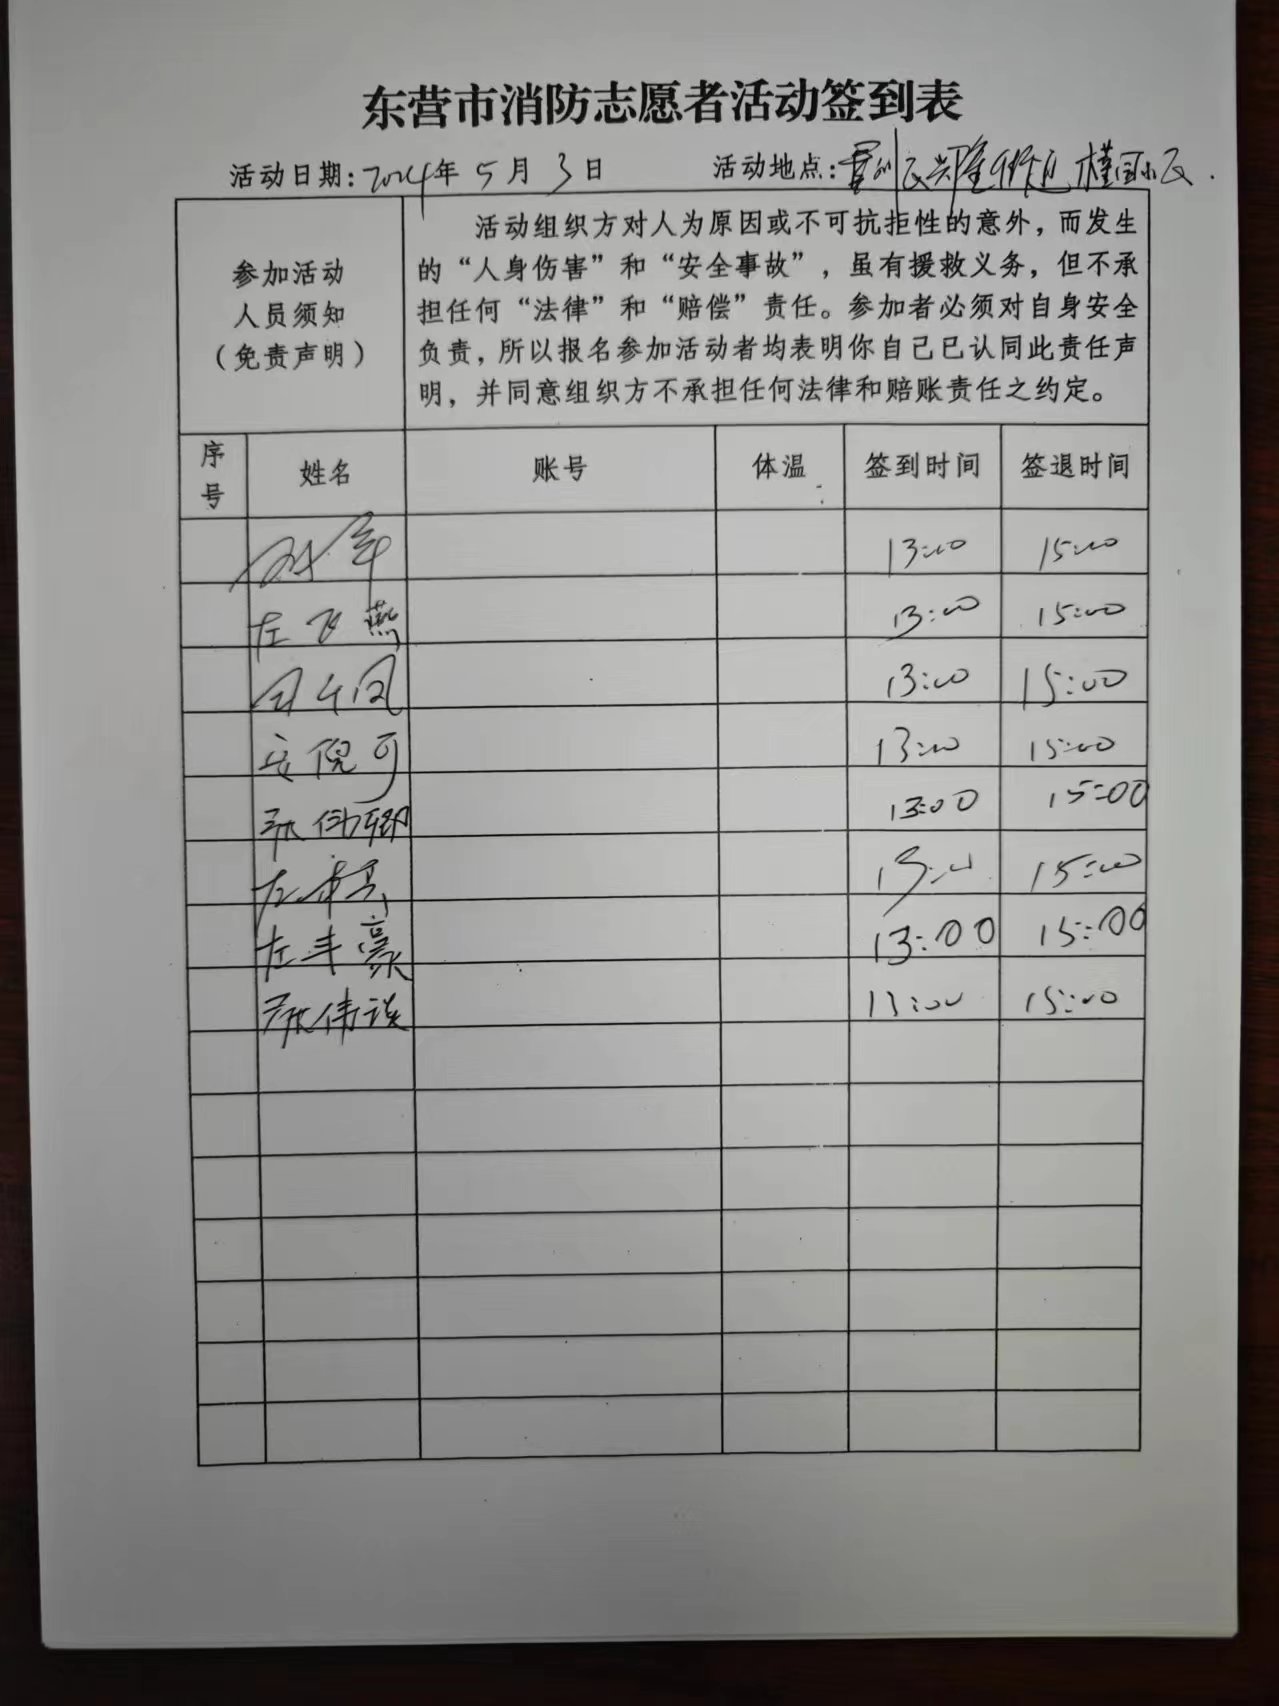 东营市消防志愿者活动签到表
活动日期：2024年5月3日 活动地点：
参加活动
人员须知
（免责声明）
活动组织方对人为原因或不可抗拒性的意外，而发生
的“人身伤害”和“安全事故”，虽有援救义务，但不承
担任何“法律”和“赔偿”责任。参加者必须对自身安全
负责，所以报名参加活动者均表明你自己已认同此责任声
明，并同意组织方不承担任何法律和赔账责任之约定。
序号 姓名 账号 体温 签到时间 签退时间
13:00 15:00
左飞燕 13:00 15:00
13:00 15:00
安倪可 13:00 15:00
13:00 15:00
左 15:00
左丰豪 13:00 15:00
13:00 15:00